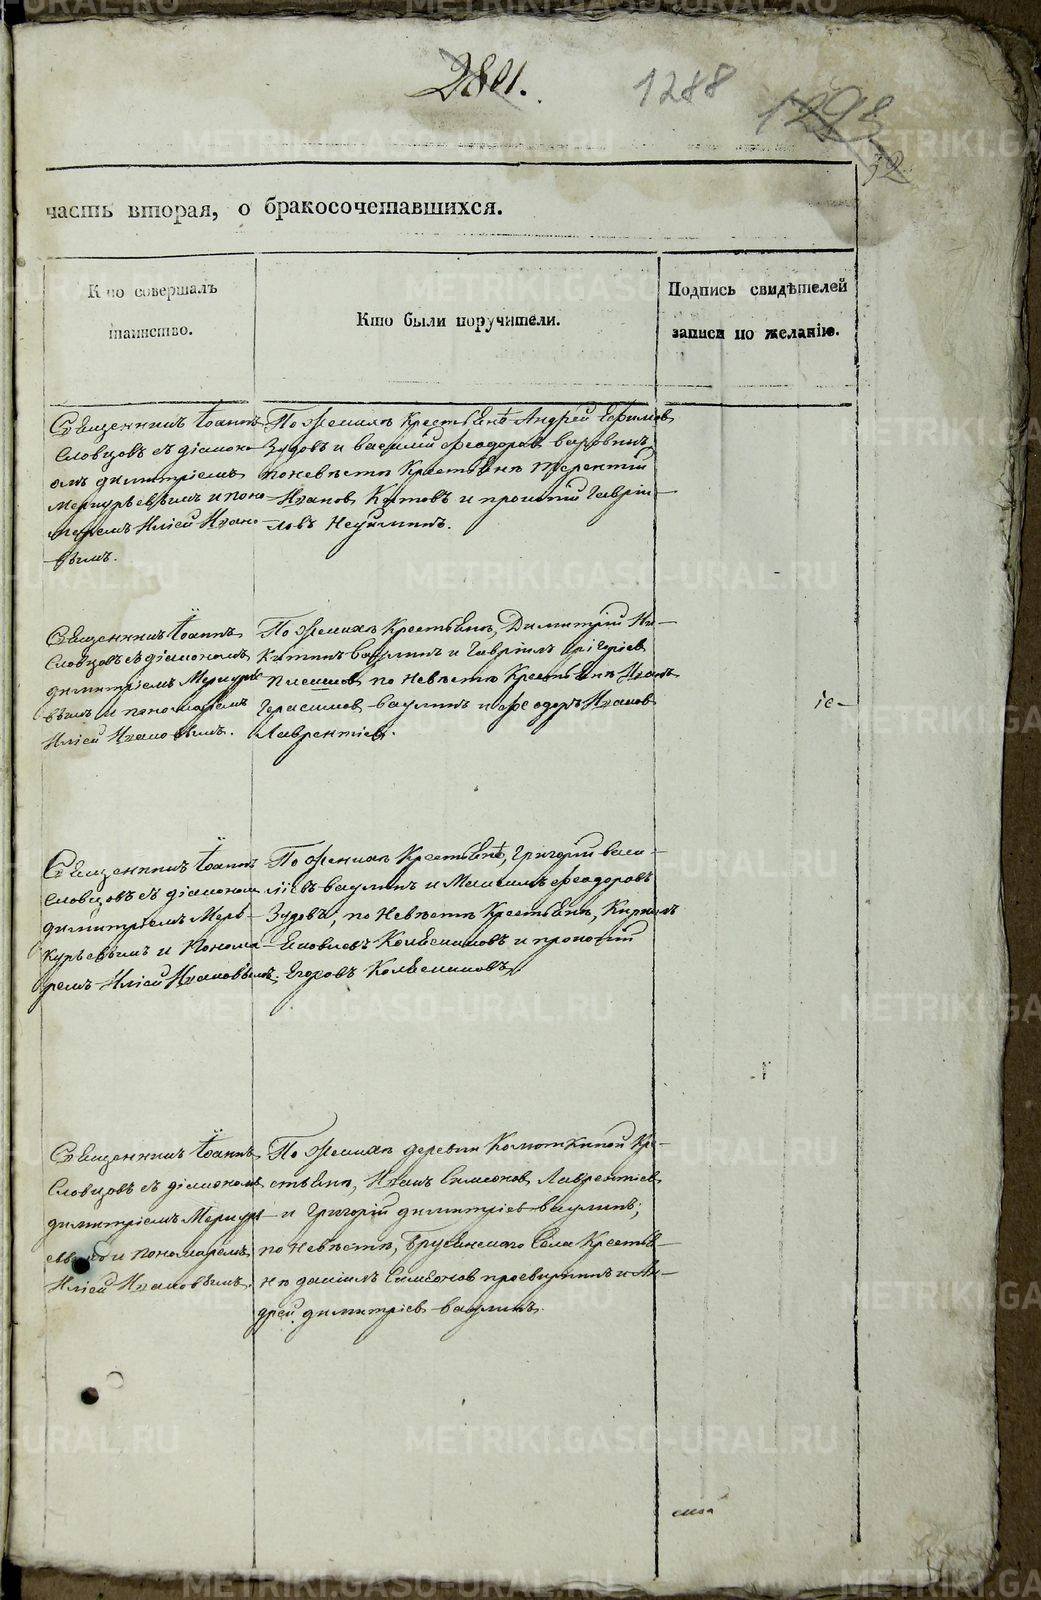 2801.
1288
1298
32
часть вторая, о бракосочетавшихся.
Кто совершалъ
таинство.
Кто были поручители.
Подпись свидѣтелей
записи по желанію.
Священникъ Іоаннъ
Словцовъ съ діакон-
омъ димитріемъ
Меркурьевымъ и поно-
маремъ Иліей Ивано-
вымъ.
По женихѣ Крестьянѣ Андрей Ефимов
Зудовъ и василий феодоров
по невѣстѣ Крестьянѣ терентій
Иванов Котовъ и прокопій Гавріи-
ловъ
Священникъ Іоаннъ
Словцовъ съ діакономъ
димитріемъ Меркурье-
вымъ и пономаремъ
Иліей Ивановымъ.
По женихѣ Крестьянѣ, Димитрій Ни-
китинъ ваулинъ и Гавріилъ григоріев
по невѣстѣ Крестьянѣ Иванъ
Герасимов ваулинъ и феодоръ Иванов
Лаврентіев.
Священникъ Іоаннъ
Словцовъ съ діаконом
димитріемъ Мер-
курьевымъ и Понома-
ремъ Иліей Ивановымъ.
По женихѣ Крестьянѣ, Григорій васи-
ліевъ ваулинъ и Максимъ феодоровъ
Зудовъ, по Невѣстѣ Крестьянѣ, Кирилъ
Яковлевъ Колясниковъ и прокопій
Егоровъ Колясниковъ.
Священникъ Іоаннъ
Словцовъ съ діакономъ
димитріемъ Меркурь-
евымъ и пономаремъ
Иліей Ивановымъ.
По женихѣ деревни Колоткиной Кре-
стьянѣ, Иванъ Симеонов Лаврентіев
и Григорій димитріев ваулинъ;
по невѣстѣ, Брусянского Села Крестья-
нѣ даніилъ Симеонов просвирнинъ и Ан-
дрей димитріев ваулинъ.
METRIKI.GASO-URAL.RU